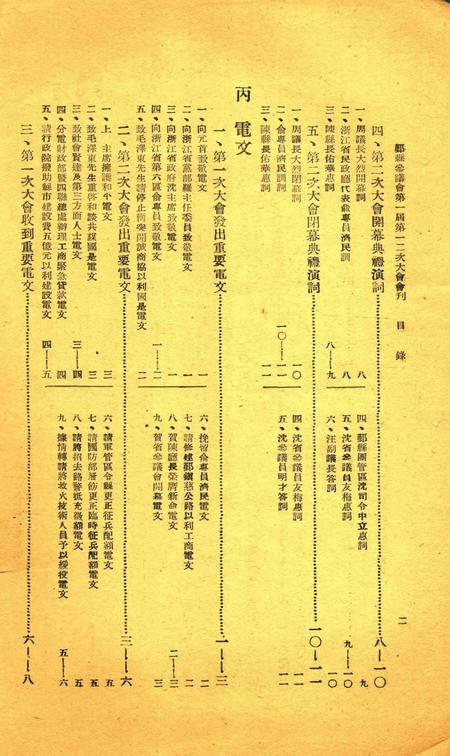 鄞縣參議會第一屆第一二次大會會刊　目錄　二
四、第二次大會開幕典禮演詞……八—一〇
一、周議長大烈開幕詞　八
二、浙江省民政廳代表俞專員濟民訓詞　八
三、陳縣長佑華惠詞　八—九
四、鄞縣團管區沈司令中立惠詞　九
五、沈省參議員友梅惠詞　九—一〇
六、汪副議長答詞　一〇
五、第二次大會閉幕典禮演詞……一〇—一一
一、周議長大烈閉幕詞　一〇
二、俞專員濟民訓詞　一〇—一一
三、陳縣長佑華惠詞　一一
四、沈省參議員友梅惠詞　一一
五、沈參議員明才答詞　一一
丙　電文
一、第一次大會發出重要電文……一—三
一、向元首致敬電文　一
二、向浙江省黨部羅主任委員致敬電文　一
三、向浙江省政府沈主席致敬電文　一
四、向浙江省第六區俞專員致敬電文　一—二
五、致毛澤東先生請停止衝突開誠商協以利國是電文　二
六、挽留俞專員濟民電文　二
七、請修建鄞鎮慈公路以利工商電文　二
八、賀陳廳長榮膺新命電文　二—三
九、賀省參議會開幕電文　三
二、第二次大會發出重要電文……三—六
一、上　主席擁護和平電文　三
二、致毛澤東先生重啓和談共謀國是電文　三
三、致社會賢達及第三方面人士電文　三—四
四、分電財政部暨四聯總處辦理工商緊急貸款電文　四
五、請行政院撥助縣市建設費五億元以利建設電文　四—五
六、請軍管區令縣更正征兵配額電文　五
七、請國防部層飭更正臨時征兵配額電文　五
八、請將招去路警抵充徵額電文　五
九、據情轉請將救火技術人員予以緩役電文　五—六
三、第一次大會收到重要電文……六—八